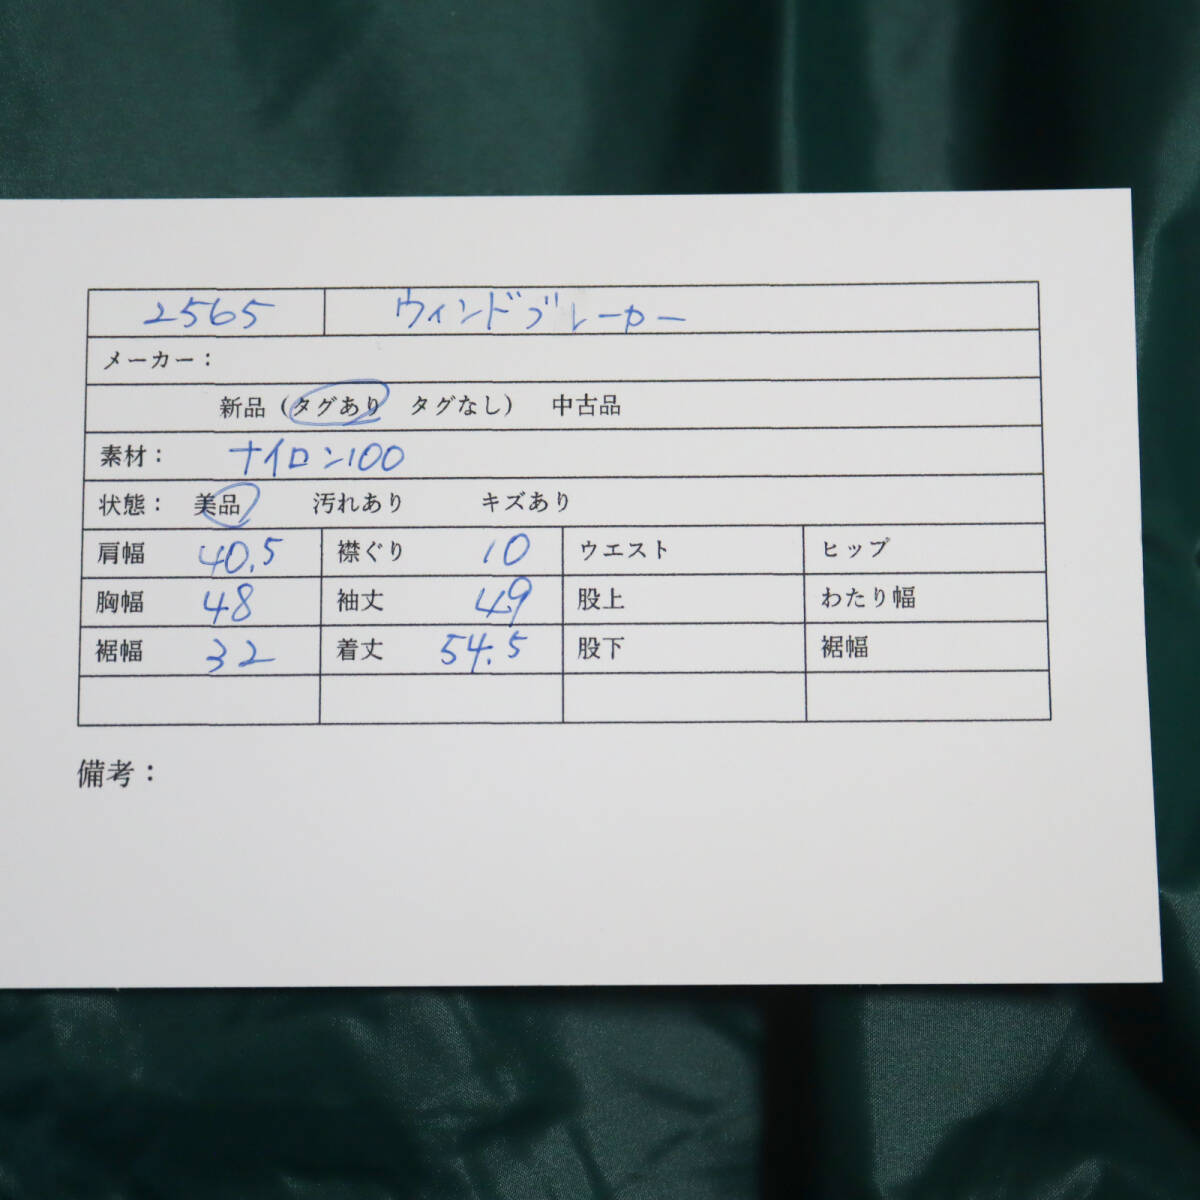 2565 ウィンドブレーカー
メーカー：
新品（タグあり タグなし） 中古品
素材： ナイロン100
状態： 美品 汚れあり キズあり
肩幅 40.5 襟ぐり 10 ウエスト ヒップ
胸幅 48 袖丈 49 股上 わたり幅
裾幅 32 着丈 54.5 股下 裾幅
備考：